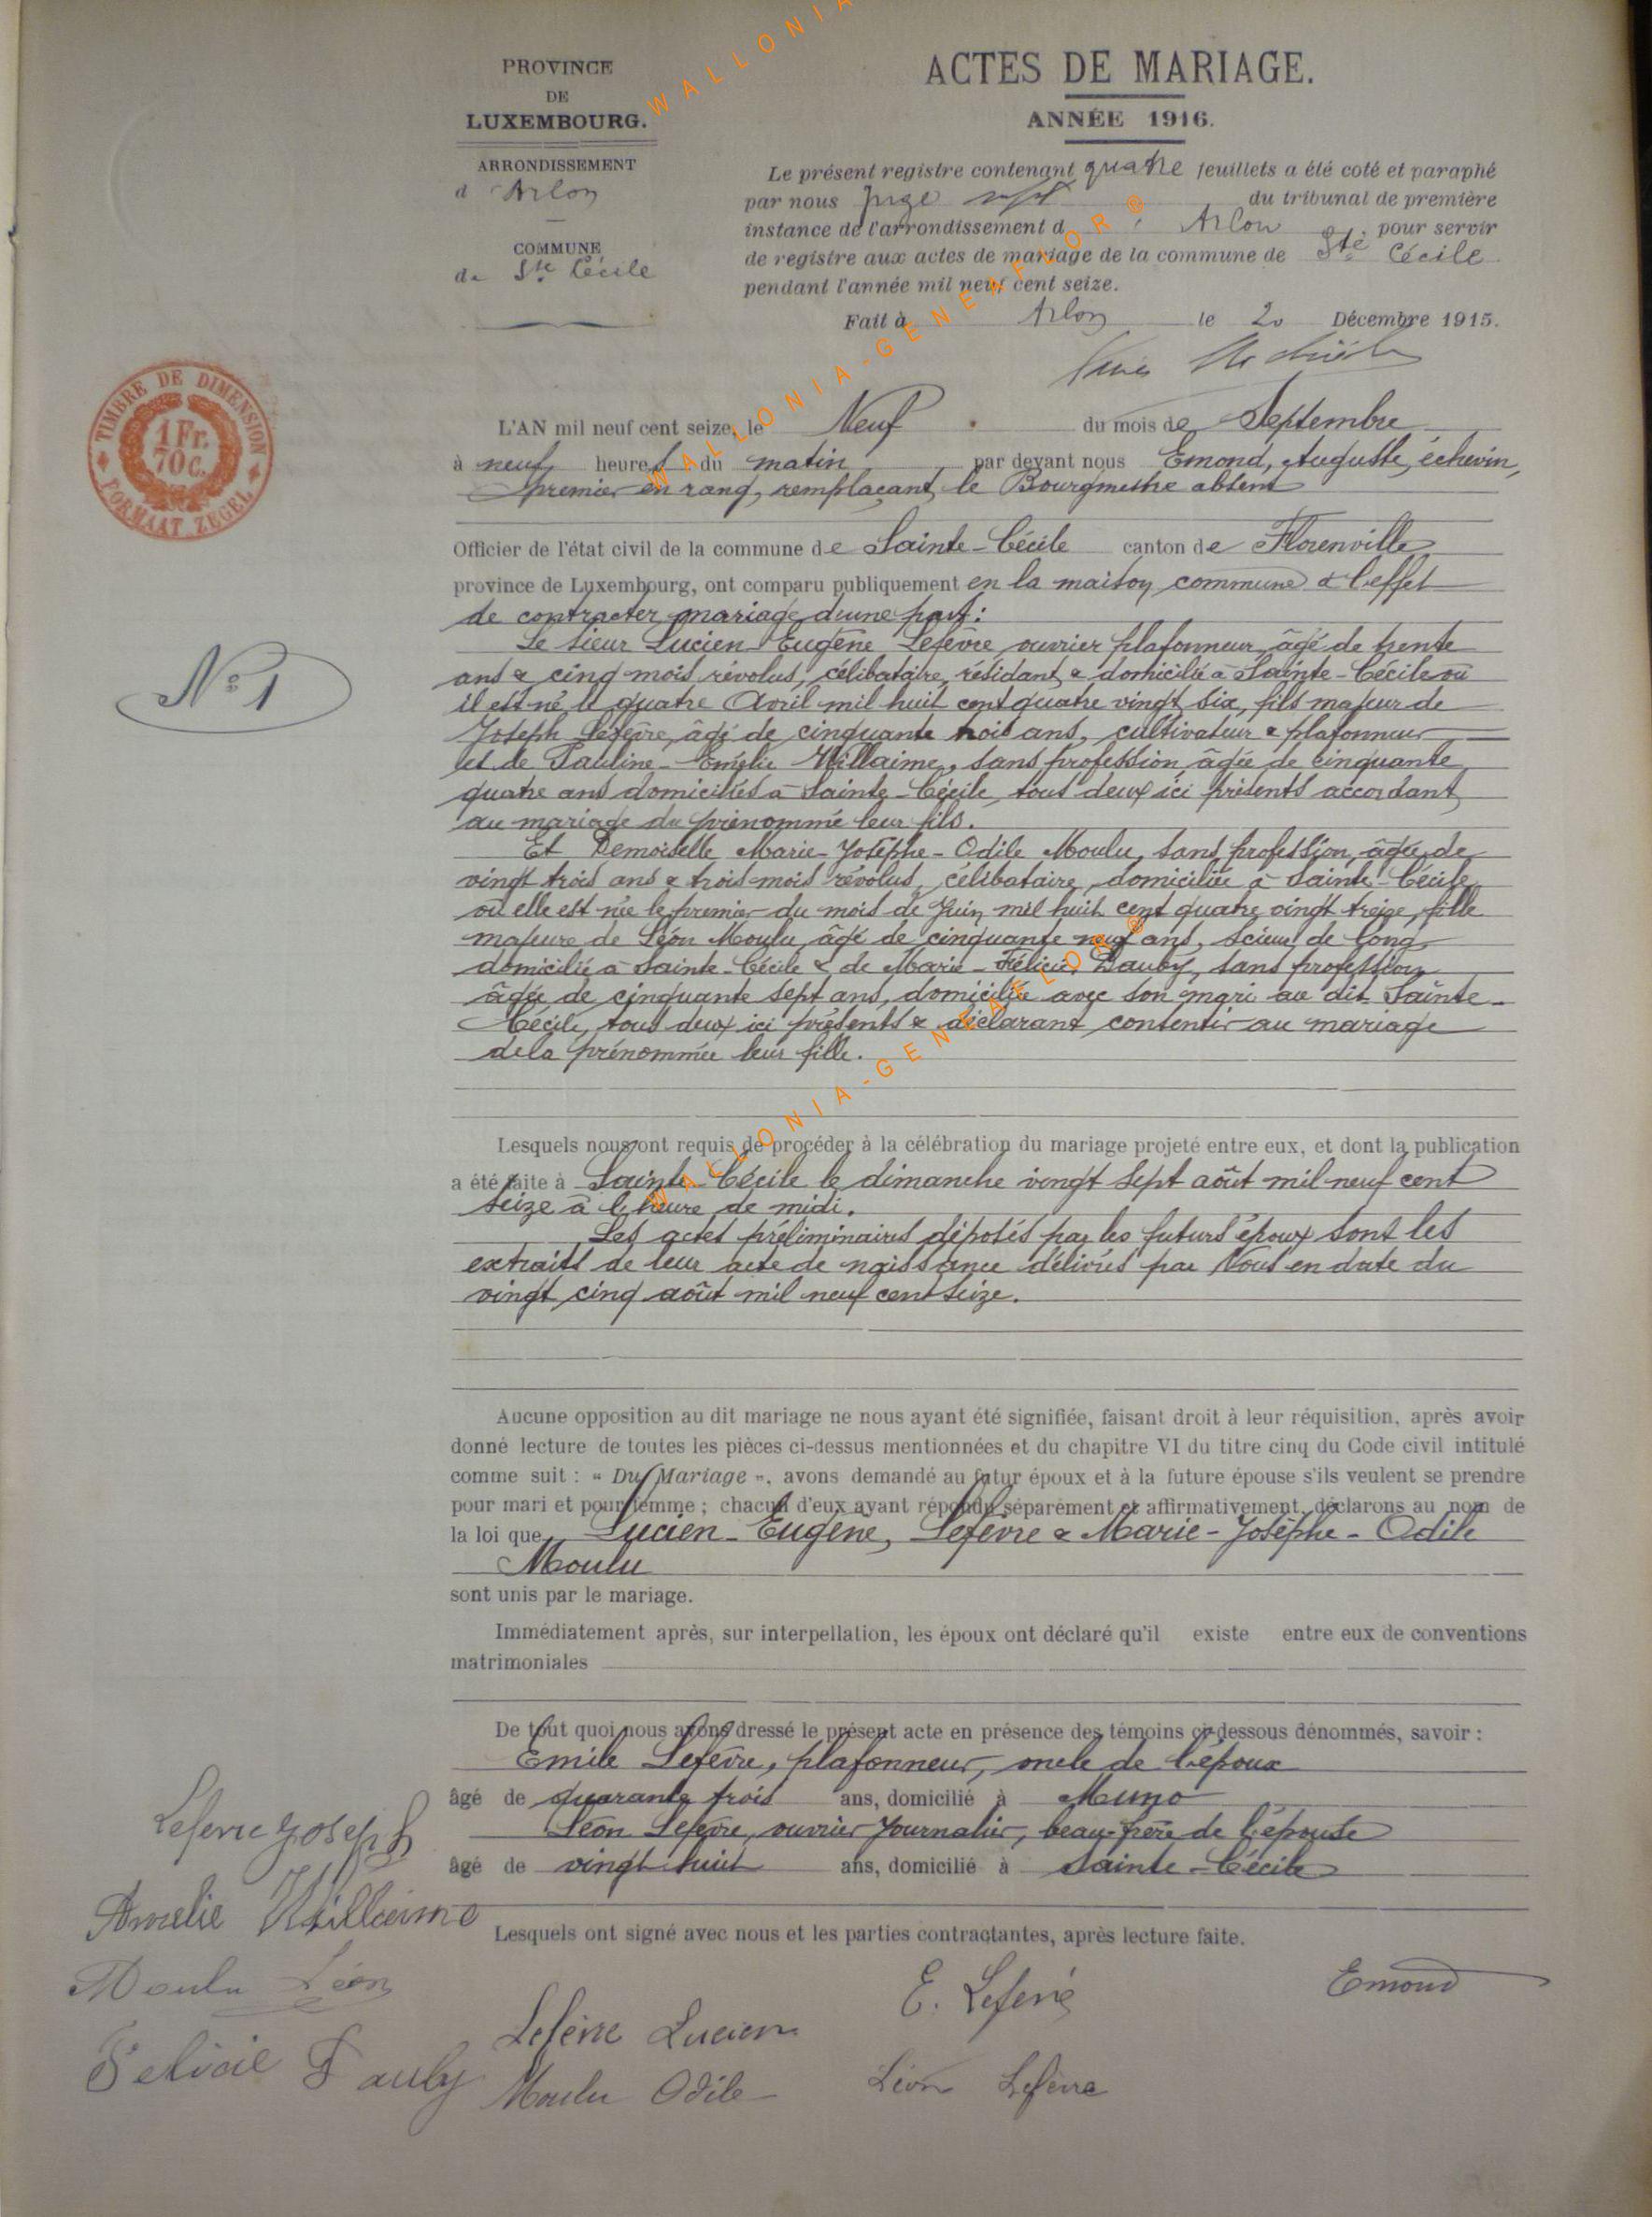 PROVINCE
DE
LUXEMBOURG.
ARRONDISSEMENT
d'Arlon
COMMUNE
de Ste Cécile
ACTES DE MARIAGE.
ANNÉE 1916.
Le présent registre contenant quatre feuillets a été coté et paraphé
par nous juge du tribunal de première
instance de l'arrondissement d'Arlon pour servir
de registre aux actes de mariage de la commune de Ste Cécile
pendant l'année mil neuf cent seize.
Fait à Arlon le 20 Décembre 1915.
TIMBRE DE DIMENSION
1 Fr.
70 C.
FORMAAT ZEGEL
N° 1
L'AN mil neuf cent seize, le Neuf du mois de Septembre
à neuf heures du matin par devant nous Emond, Auguste, échevin,
premier en rang, remplaçant le Bourgmestre absent
Officier de l'état civil de la commune de Sainte-Cécile canton de Florenville
province de Luxembourg, ont comparu publiquement en la maison commune à l'effet
de contracter mariage d'une part:
Le sieur Lucien-Eugène Lefèvre ouvrier plafonneur, âgé de trente
ans & cinq mois révolus, célibataire, résidant & domicilié à Sainte-Cécile où
il est né le quatre Avril mil huit cent quatre vingt six, fils majeur de
Joseph Lefèvre, âgé de cinquante trois ans, cultivateur & plafonneur
et de Pauline-Emélie Willaime, sans profession, âgée de cinquante
quatre ans domiciliés à Sainte-Cécile, tous deux ici présents accordant
au mariage du prénommé leur fils.
Et Demoiselle Marie-Josèphe-Odile Moulu, sans profession, âgée de
vingt trois ans & trois mois révolus, célibataire, domiciliée à Sainte-Cécile
où elle est née le premier du mois de Juin mil huit cent quatre vingt treize, fille
majeure de Léon Moulu, âgé de cinquante neuf ans, scieur de long
domicilié à Sainte-Cécile & de Marie-Félicie Dauby, sans profession
âgée de cinquante sept ans, domiciliée avec son mari au dit Sainte-
Cécile, tous deux ici présents & déclarant consentir au mariage
de la prénommée leur fille.
Lesquels nous ont requis de procéder à la célébration du mariage projeté entre eux, et dont la publication
a été faite à Sainte-Cécile le dimanche vingt sept août mil neuf cent
seize à l'heure de midi.
Les actes préliminaires déposés par les futurs époux sont les
extraits de leur acte de naissance délivrés par Nous en date du
vingt cinq août mil neuf cent seize.
Aucune opposition au dit mariage ne nous ayant été signifiée, faisant droit à leur réquisition, après avoir
donné lecture de toutes les pièces ci-dessus mentionnées et du chapitre VI du titre cinq du Code civil intitulé
comme suit : « Du Mariage », avons demandé au futur époux et à la future épouse s'ils veulent se prendre
pour mari et pour femme ; chacun d'eux ayant répondu séparément et affirmativement, déclarons au nom de
la loi que Lucien-Eugène, Lefèvre & Marie-Josèphe-Odile
Moulu
sont unis par le mariage.
Immédiatement après, sur interpellation, les époux ont déclaré qu'il existe entre eux de conventions
matrimoniales
De tout quoi nous avons dressé le présent acte en présence des témoins ci-dessous dénommés, savoir :
Emile Lefèvre, plafonneur, oncle de l'époux
âgé de quarante trois ans, domicilié à Muno
Léon Lefèvre, ouvrier Journalier, beau-frère de l'épouse
âgé de vingt huit ans, domicilié à Sainte-Cécile
Lesquels ont signé avec nous et les parties contractantes, après lecture faite.
Lefevre Joseph
Amelie Willaime
Moulu Léon
Felicie Dauby
Lefèvre Lucien
Moulu Odile
E. Lefèvre
Léon Lefèvre
Emond
WALLONIA-GENEALOR®
WALLONIA-GENEALOR®
WALLONIA